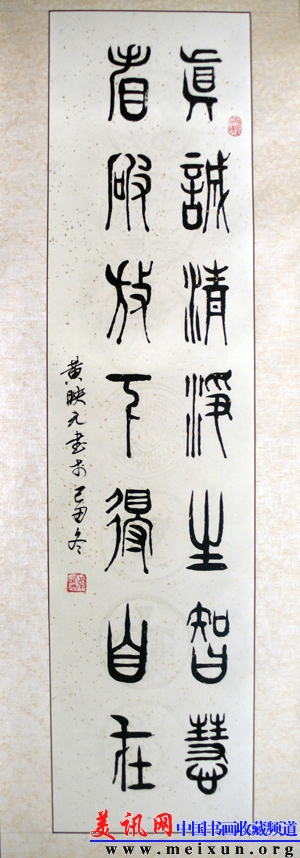 眞誠清淨生智慧
看破放下得自在
黃映元書于己丑冬
美讯网 中国书画收藏频道
www.meixun.org